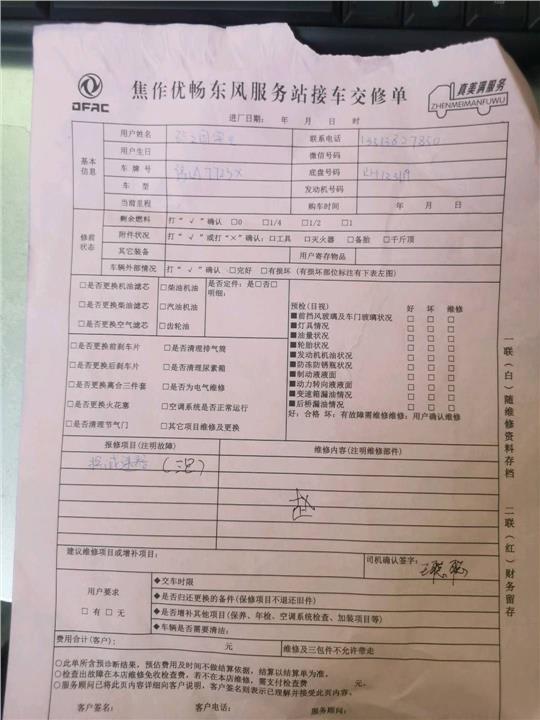 DFAC
焦作优畅东风服务站接车交修单
真美满服务
ZHENMEIMANFUWU
进厂日期： 年 月 日 时
基本信息
用户姓名 联系电话
用户生日 微信号码
车牌号 底盘号码
车型 发动机号码
当前里程 购车时间 年 月 日
修前状态
剩余燃料 打“√”确认 □0 □1/4 □1/2 □1
附件状况 打“√”或打“×”确认：□工具 □灭火器 □备胎 □千斤顶
其它装备 用户寄存物品
车辆外部情况 打“√”确认 □完好 □有损坏（有损坏部位标注有下表左图）
□是否更换机油滤芯 □柴油机油 是否定件：是□否□
明细：
□是否更换柴油滤芯 □汽油机油
□是否更换空气滤芯 □齿轮油
□是否更换前刹车片 □是否清理排气筒
□是否更换后刹车片 □是否清理尿素箱
□是否更换离合三件套 □是否为电气维修
□是否更换火花塞 □空调系统是否正常运行
□是否清理节气门 □其它项目维修及更换
预检（目视） 好 坏 维修
■前挡风玻璃及车门玻璃状况 □ □ □
■灯具情况 □ □ □
■油量状况 □ □ □
■轮胎状况 □ □ □
■发动机机油状况 □ □ □
■防冻防锈瓶状况 □ □ □
■制动液液面 □ □ □
■动力转向液液面 □ □ □
■变速箱漏油情况 □ □ □
■后桥漏油情况 □ □ □
好：合格 坏：有故障需维修维修：用户确认维修
报修项目（注明故障） 维修内容（注明维修部件）
建议维修项目或增补项目： 司机确认签字：
用户要求
□有 □无
◆交车时限
◆是否归还更换的备件（保修项目不退还旧件）
◆是否增补其他项目（保养、年检、空调系统检查、加装项目等）
◆车辆是否需要清洁：
费用合计（客户）： 元 维修及三包件不允许带走
○此单所含预诊断结果，预估费用及时间不做结算依据，结算以结算单为准。
○检查出故障在本店维修免收检查费，若不在本店维修，需支付检查费 元。
○服务顾问已将此页内容详细向客户说明，客户签名则表示已理解并接受此页内容。
客户签名： 客户电话： 服务顾问：
一联（白）随维修资料存档
二联（红）财务留存